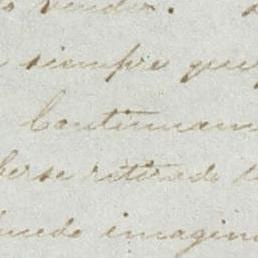 vendio.
siempre que
Continuam
berse retirado d
puede imagina